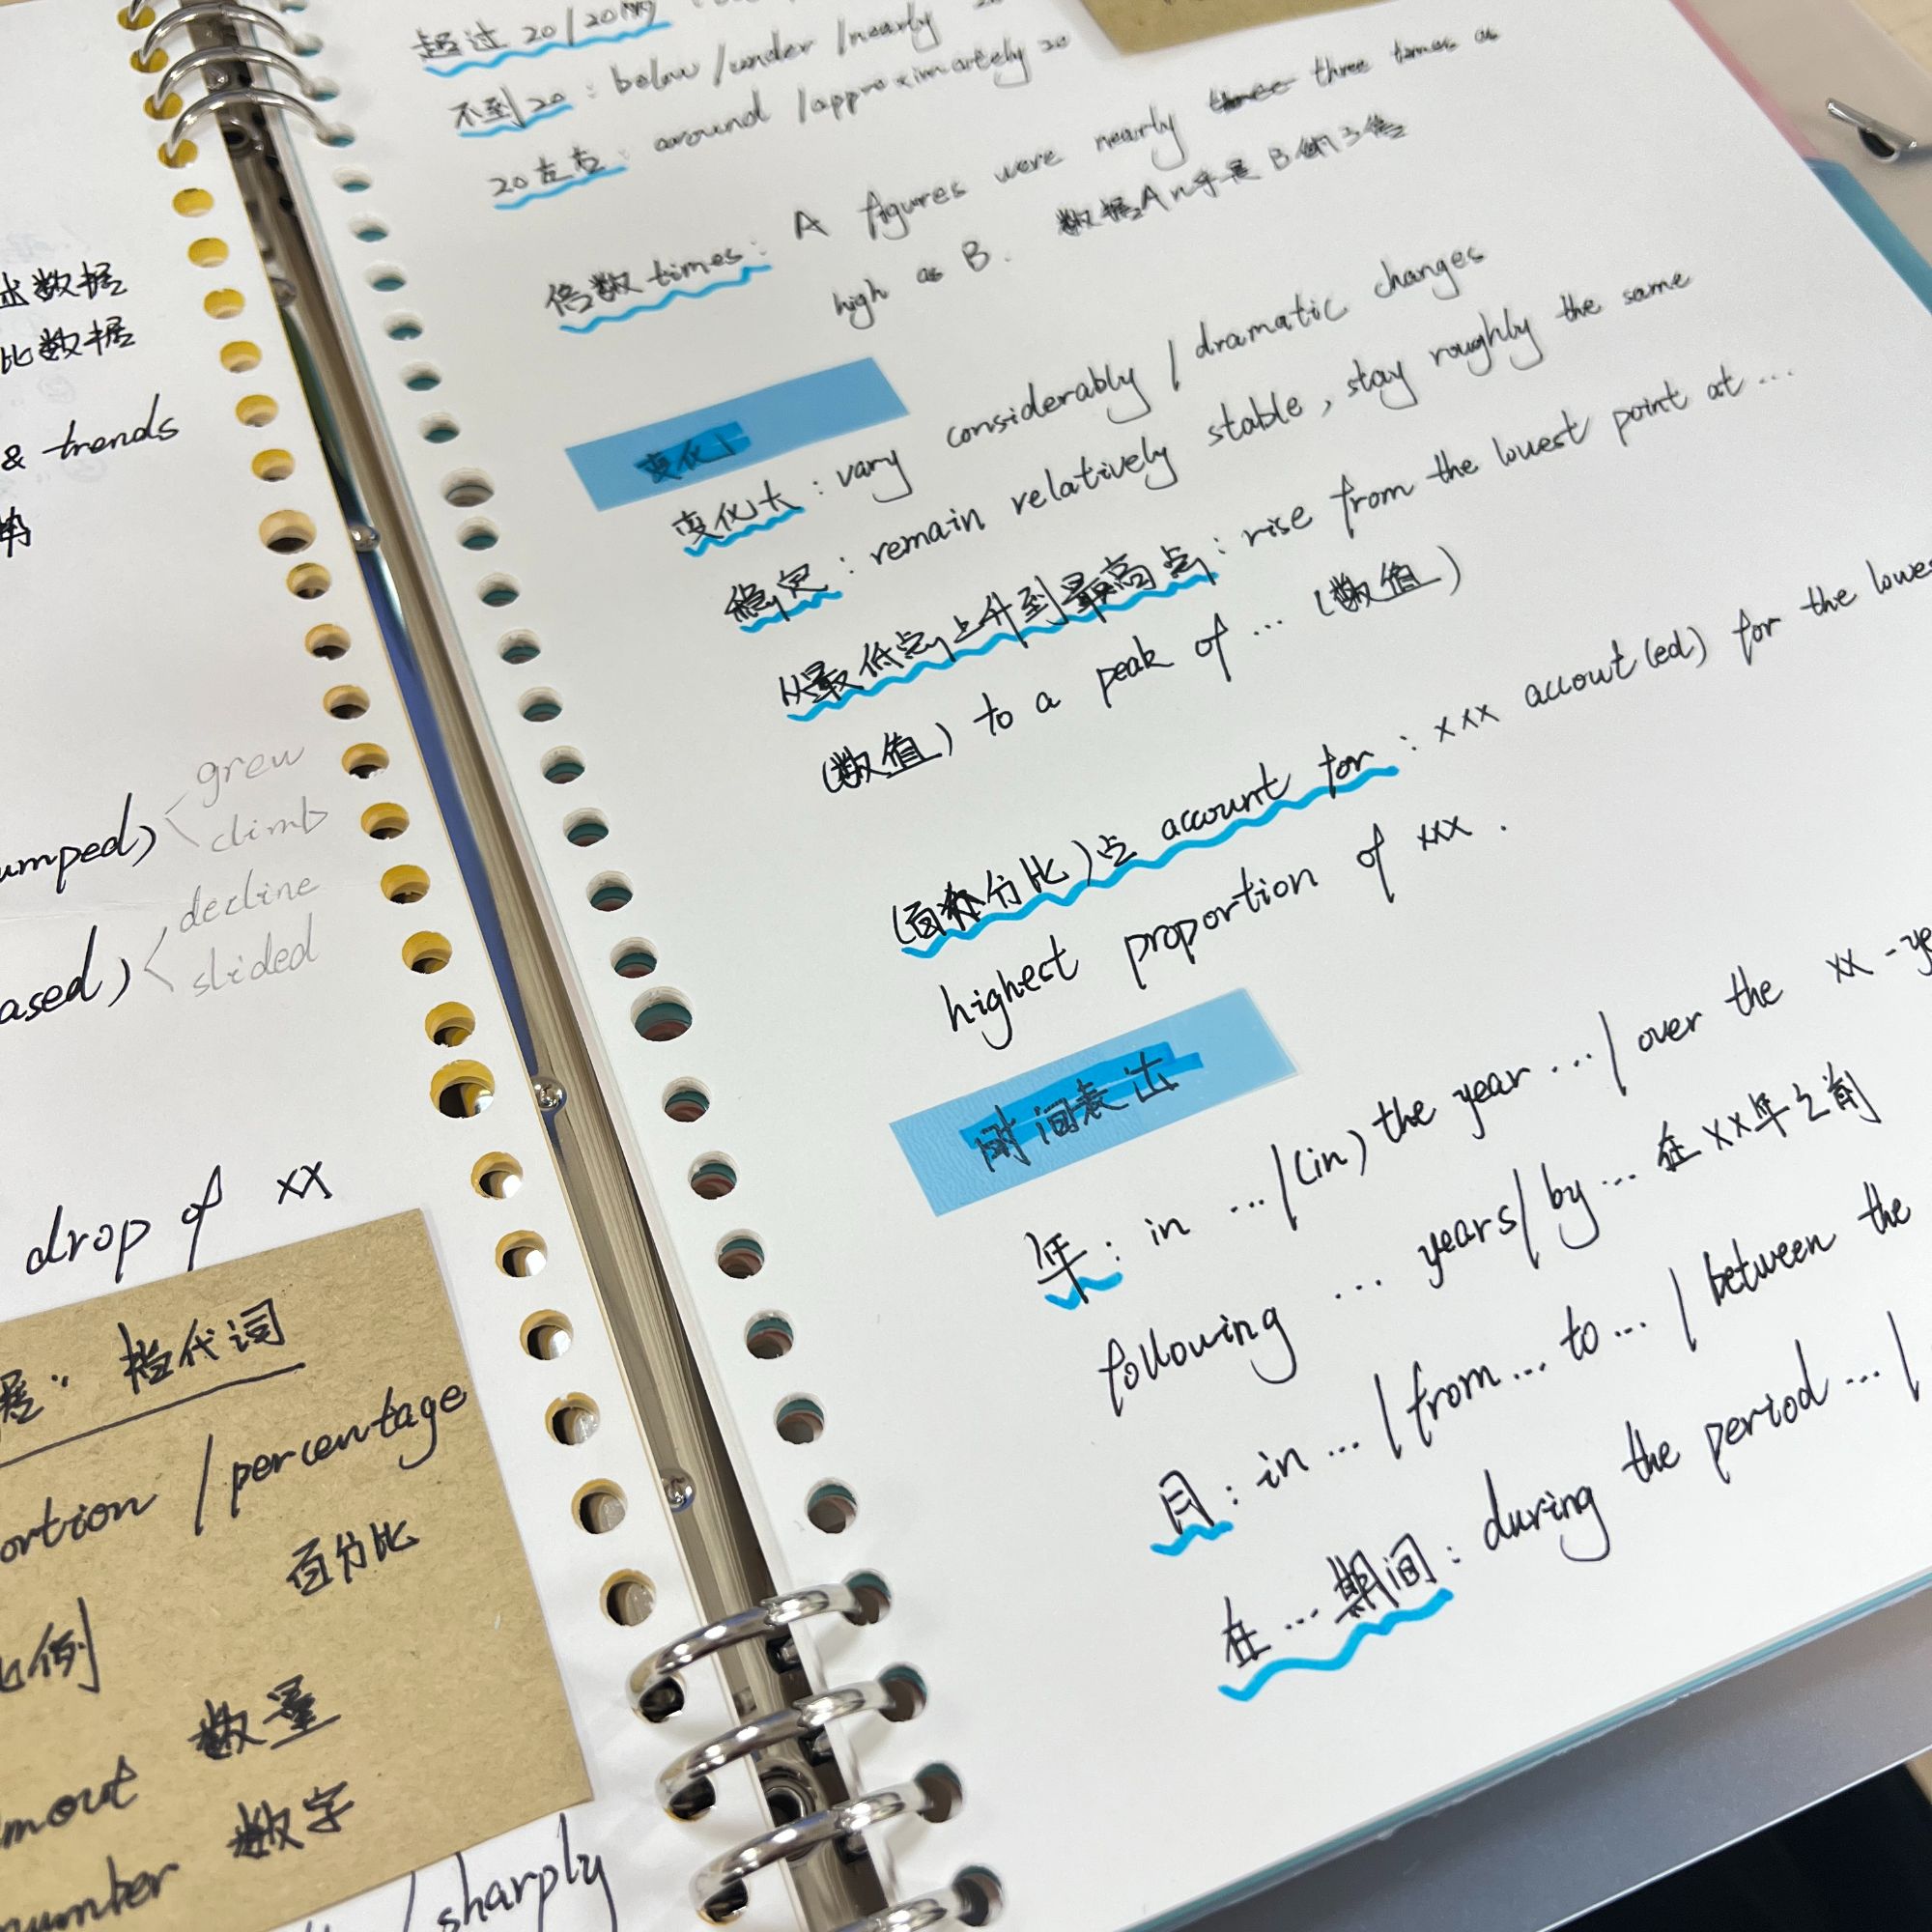 述数据
比数据
& trends
势
umped)
grew
climb
ased)
decline
slided
drop of xx
展: 指代词
ortion / percentage
百分比
比例
mout 数量
number 数字
/ sharply
超过 20 / 20的
不到20 : below / under / nearly 20
20左右 : around / approximately 20
倍数 times : A figures were nearly three times as
high as B. 数据A几乎是B的3倍
变化
变化大 : vary considerably / dramatic changes
稳定 : remain relatively stable, stay roughly the same
从最低点上升到最高点 : rise from the lowest point at ...
(数值) to a peak of ... (数值)
(百分比) 占 account for : xxx accout(ed) for the lowes
highest proportion of xxx .
时间表达
年 : in ... / (in) the year ... / over the xx - ye
following ... years / by ... 在xx年之前
月 : in ... / from ... to ... / between the
在 ... 期间 : during the period ... /